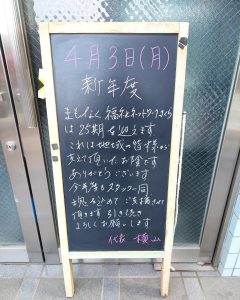 4月3日(月)
新年度
まもなく福祉ネットワークさくら
は25期を迎えます
これは地域の皆様から
支えて頂いたお陰です
ありがとうございます
今年度もスタッフ一同
魂を込めてご支援させて
頂きます 引き続き
よろしくお願いします
代表 横山